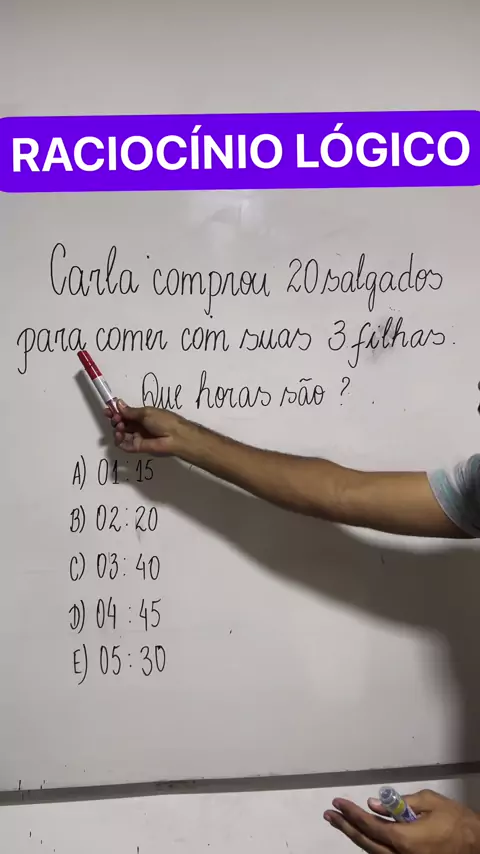 RACIOCÍNIO LÓGICO
Carla comprou 20 salgados
para comer com suas 3 filhas.
Que horas são ?
A) 01:15
B) 02:20
C) 03:40
D) 04:45
E) 05:30